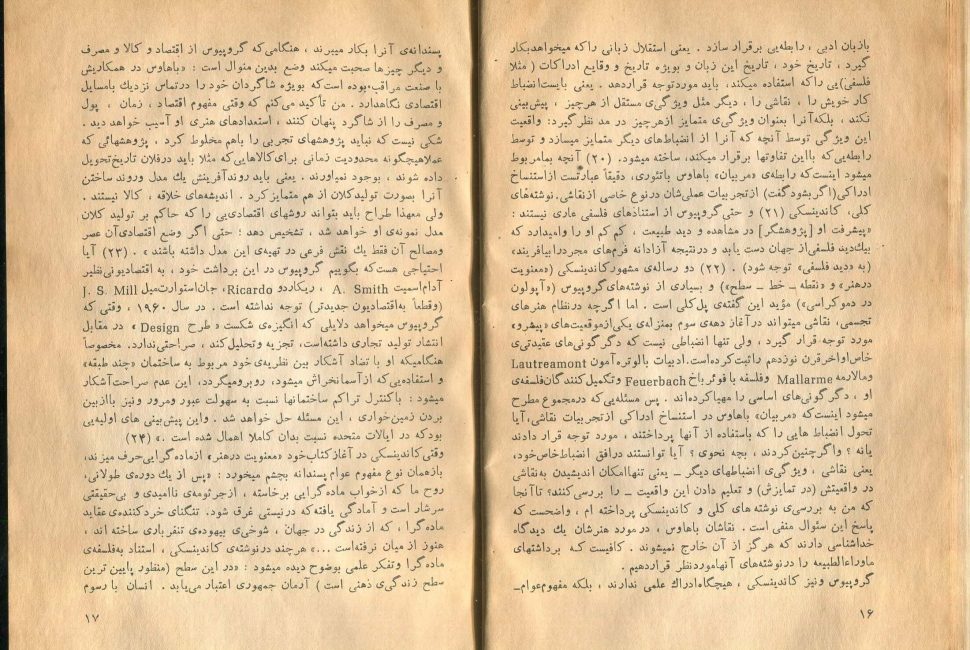 بازبان ادبی ، رابطه‌یی برقرار سازد . یعنی استقلال زبانی راکه میخواهدبکار
گیرد ، تاریخ خود ، تاریخ این زبان و بویژه تاریخ و وقایع ادراکات ( مثلا
فلسفی)یی راکه استفاده میکند، باید موردتوجه قراردهد . یعنی بایست‌انضباط
کار خویش را ، نقاشی را ، دیگر مثل ویژگی مستقل از هرچیز ، پیش‌بینی
نکند ، بلکه‌آنرا بعنوان ویژگی‌ی متمایز ازهرچیز در مد نظر گیرد: واقعیت
این ویژگی توسط آنچه که آنرا از انضباطهای دیگر متمایز میسازد و توسط
رابطه‌یی که بااین تفاوتها برقرار میکند، ساخته میشود. (۲۰) آنچه بمامربوط
میشود اینست‌که رابطه‌ی «مربیان» باهاوس باتئوری، دقیقاً عبارتست ازاستنساخ
ادراکی(اگربشودگفت) ازتجربیات عملی‌شان درنوع خاصی ازنقاشی. نوشته‌های
کلی، کاندینسکی (۲۱) و حتی‌گروپیوس از استنادهای فلسفی عاری نیستند :
«پیشرفت او [پژوهشگر] در مشاهده و دید طبیعت ، کم کم او را وامیدارد که
بیك‌دید فلسفی‌از جهان دست یابد و درنتیجه آزادانه فرم‌های مجردرابیافریند»
(به «دید فلسفی» توجه شود) . (۲۲) دو رساله‌ی مشهورکاندینسکی («معنویت
درهنر» و «نقطه – خط – سطح») و بسیاری از نوشته‌های‌گروپیوس («آپولون
در دموکراسی») مؤید این گفته‌ی پل‌کلی است . اما اگرچه درنظام هنرهای
تجسمی، نقاشی میتواند درآغاز دهه‌ی سوم بمنزله‌ی یکی‌ازموقعیت‌های «پیشرو»
مورد توجه قرار گیرد ، ولی تنها انضباطی نیست که دگرگونی‌های عقیدتی‌ی
خاص‌اواخرقرن نوزدهم راثبت‌کرده‌است.ادبیات بالوتره‌آمون Lautreamont
ومالارمه Mallarme وفلسفه با فوئرباخ Feuerbach وتکمیل‌کنندگان‌فلسفه‌ی
او ، دگرگونی‌های اساسی را مهیاکرده‌اند. پس مسئله‌یی‌که درمجموع مطرح
میشود اینست‌که «مربیان» باهاوس در استنساخ ادراکی ازتجربیات نقاشی،آیا
تحول انضباط هایی را که باستفاده از آنها پرداختند ، مورد توجه قرار دادند
یانه ؟ واگرچنین‌کردند ، بچه نحوی ؟ آیا توانستند درافق انضباط‌خاص‌خود،
یعنی نقاشی ، ویژگی‌ی انضباطهای دیگر – یعنی تنهاامکان اندیشیدن به‌نقاشی
در واقعیتش (در تمایزش) و تعلیم دادن این واقعیت – را بررسی‌کنند؟ تاآنجا
که من به بررسی‌ی نوشته های کلی و کاندینسکی پرداخته ام ، واضحست که
پاسخ این سئوال منفی است . نقاشان باهاوس ، درمورد هنرشان یك دیدگاه
خداشناسی دارند که هرگز از آن خارج نمیشوند . کافیست که برداشتهای
ماوراءالطبیعه را درنوشته‌های آنهاموردنظر قراردهیم .
گروپیوس ونیز کاندینسکی ، هیچگاه‌ادراك علمی ندارند ، بلکه مفهوم‌عوام–
۱۶
پسندانه‌ی آنرا بکار میبرند ، هنگامی‌که گروپیوس از اقتصاد و کالا و مصرف
و دیگر چیزها صحبت میکند وضع بدین منوال است : «باهاوس در همکاریش
با صنعت مراقب بوده است‌که بویژه شاگردان خود را درتماس نزدیك بامسایل
اقتصادی نگاهدارد . من تأکید می‌کنم که وقتی مفهوم اقتصاد ، زمان ، پول
و مصرف را از شاگرد پنهان کنند ، استعدادهای هنری او آسیب خواهد دید .
شکی نیست که نباید پژوهشهای تجربی را باهم مخلوط کرد ، پژوهشهائی که
عملاهیچگونه محدودیت زمانی برای‌کالاهایی‌که مثلا باید درفلان تاریخ‌تحویل
داده شوند ، بوجود نمیاورند . یعنی باید روندآفرینش یك مدل وروند ساختن
آنرا بصورت تولیدکلان از هم متمایزکرد . اندیشه‌های خلاقه ، کالا نیستند .
ولی معهذا طراح باید بتواند روشهای اقتصادی‌یی را که حاکم بر تولید کلان
مدل نمونه‌ی او خواهد شد ، تشخیص دهد ؛ حتی اگر وضع اقتصادی‌آن عصر
ومصالح آن فقط یك نقش فرعی در تهیه‌ی این مدل داشته باشند» . (۲۳) آیا
احتیاجی هست‌که بگوییم گروپیوس در این برداشت خود ، به اقتصادیونی‌نظیر
آدام‌اسمیت A. Smith ، ریکاردو Ricardo، جان‌استوارت‌میل J. S. Mill
(وقطعاً به‌اقتصادیون جدیدتر) توجه نداشته است . در سال ۱۹۶۰ ، وقتی که
گروپیوس میخواهد دلایلی که انگیزه‌ی شکست « طرح Design » در مقابل
انتشار تولید تجاری داشته‌است، تجزیه و تحلیل‌کند ، صراحتی‌ندارد. مخصوصاً
هنگامیکه او با تضاد آشکار بین نظریه‌ی خود مربوط به ساختمان «چند طبقه»
و استفاده‌یی‌که ازآسمانخراش میشود، روبرومیگردد، این عدم صراحت‌آشکار
میشود : باکنترل تراکم ساختمانها نسبت به سهولت عبور ومرور ونیز باازبین
بردن زمین‌خواری ، این مسئله حل خواهد شد . واین پیش‌بینی های اولیه‌یی
بودکه در ایالات متحده نسبت بدان کاملا اهمال شده است .» (۲۴)
وقتی‌کاندینسکی در آغازکتاب‌خود «معنویت درهنر» ازماده‌گرایی‌حرف میزند،
بازهمان نوع مفهوم عوام پسندانه بچشم میخورد : «پس از یك دوره‌ی طولانی،
روح ما که ازخواب ماده‌گرایی برخاسته ، ازجرثومه‌ی ناامیدی و بی‌حقیقتی
سرشار است و آمادگی یافته‌که درنیستی غرق شود. تنگنای خردکننده‌ی‌عقاید
ماده‌گرا ، که از زندگی در جهان ، شوخی‌ی بیهوده‌ی تنفرباری ساخته اند ،
هنوز از میان نرفته‌است ...» هرچند درنوشته‌ی کاندینسکی ، استناد به‌فلسفه‌ی
ماده‌گرا و تفکر علمی بوضوح دیده میشود : «در این سطح (منظور پایین ترین
سطح زندگی‌ی ذهنی است ) آرمان جمهوری اعتبار می‌یابد . انسان با رسوم
۱۷